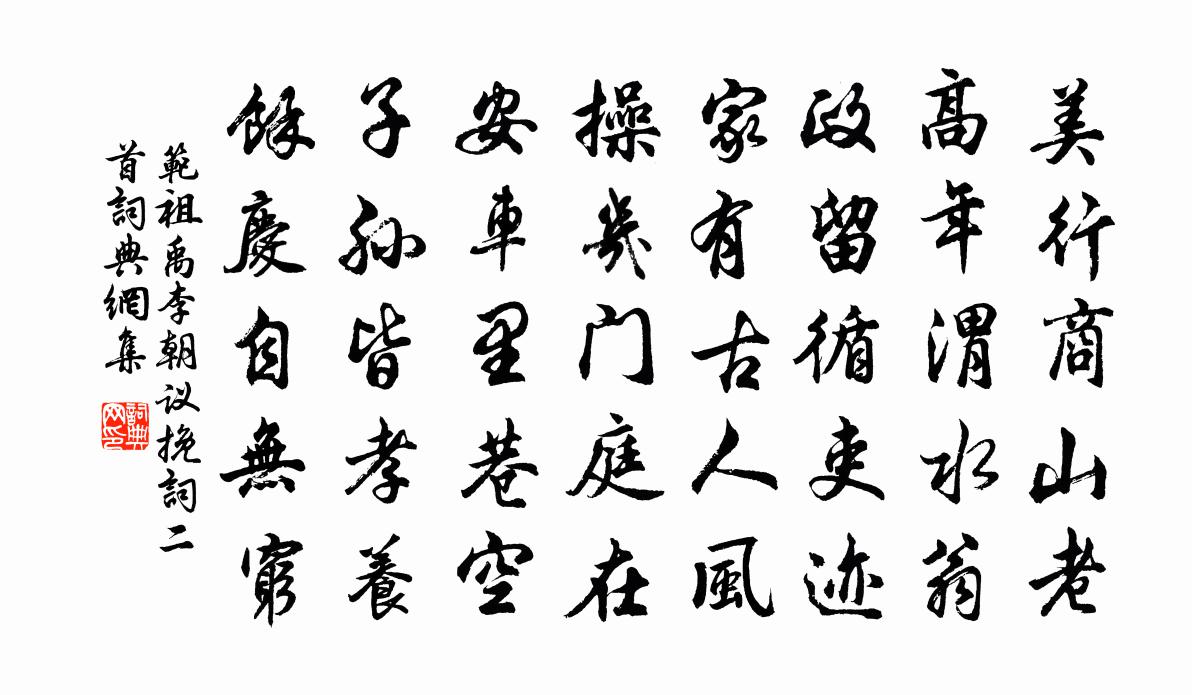 美行商山老
高年渭水翁
政留循吏迹
家有古人風
操几門庭在
安車里巷空
子孫皆孝養
餘慶自無窮
範祖禹李朝议挽詞二
首詞典網集
詞典网印